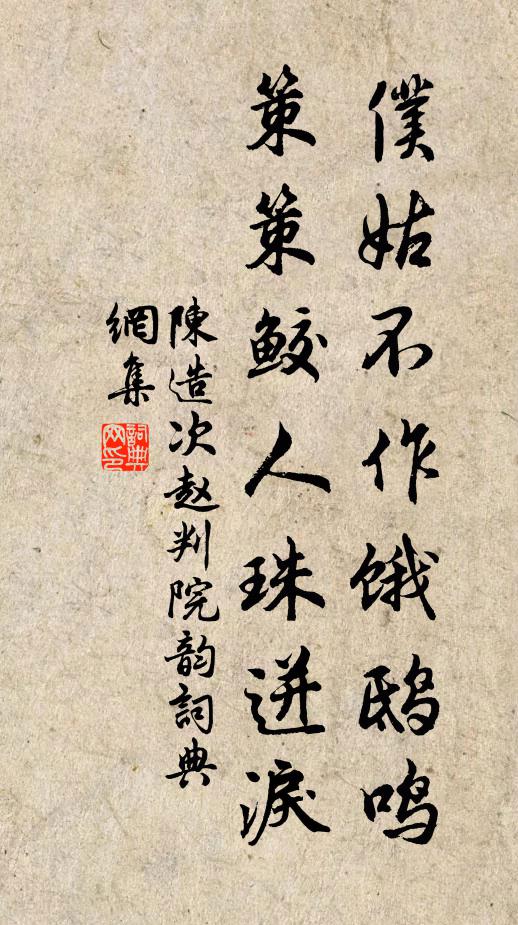 僕姑不作餓鴟鳴
策策鮫人珠迸淚
陳造次趙判院韵詞典
網集
詞典
网印